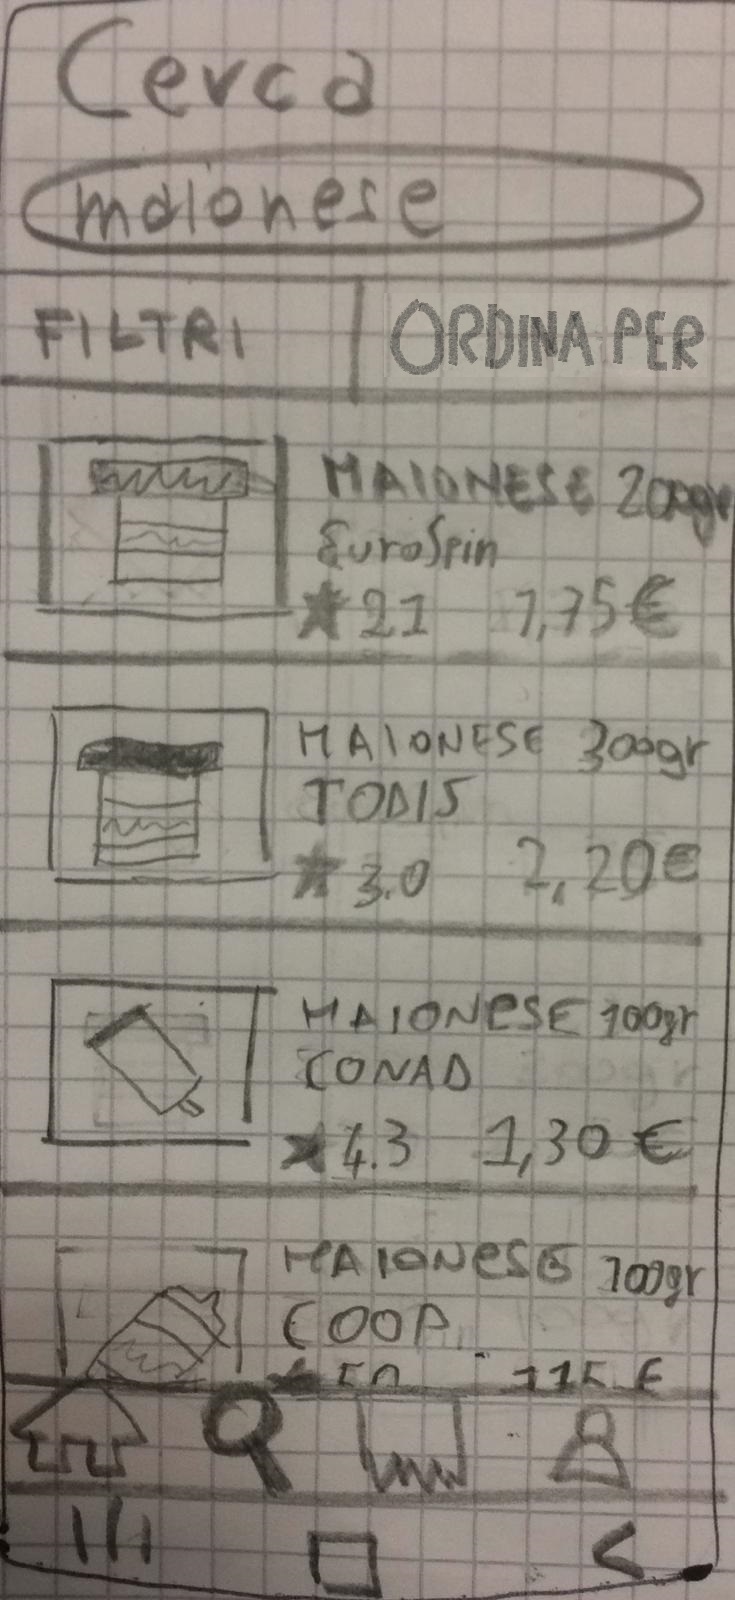 Cerca
maionese
FILTRI ORDINA PER
MAIONESE 200gr
EuroSpin
★ 2.1 1,75€
MAIONESE 300gr
TODIS
★ 3.0 2,20€
MAIONESE 100gr
CONAD
★ 4.3 1,30€
MAIONESE 100gr
COOP
★ 5.0 €